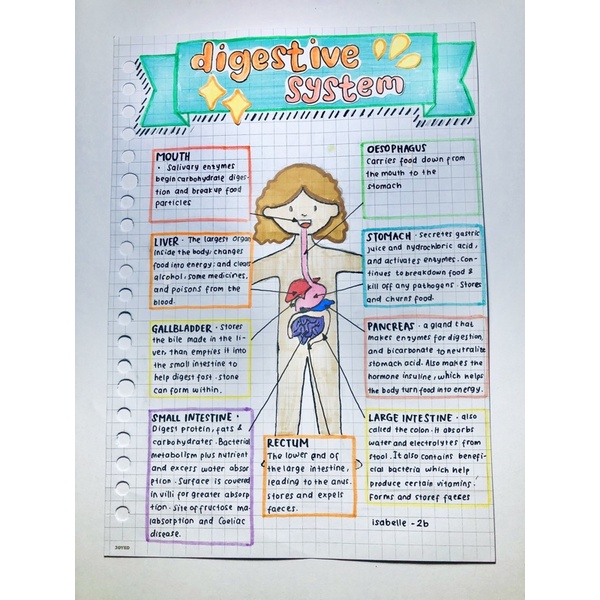 digestive
system
MOUTH
• Salivary enzymes
begin carbohydrate diges-
tion and break up food
particles
OESOPHAGUS
Carries food down from
the mouth to the
stomach
LIVER • The largest organ
inside the body; changes
food into energy; and clears
alcohol, some medicines,
and poisons from the
blood.
STOMACH • Secretes gastric
juice and hydrochloric acid,
and activates enzymes. Con-
tinues to breakdown food &
kill off any pathogens. Stores
and churns food.
GALLBLADDER • stores
the bile made in the li-
ver, than empties it into
the small intestine to
help digest fast. Stone
can form within.
PANCREAS • a gland that
makes enzymes for digestion,
and bicarbonate to neutralize
stomach acid. Also makes the
hormone insuline, which helps
the body turn food into energy.
SMALL INTESTINE •
Digest protein, fats &
carbohydrates. Bacterial
metabolism plus nutrient
and excess water absor
ption. Surface is covered
in villi for greater absorp
tion. Site of fructose ma-
labsorption and Coeliac
disease.
RECTUM
The lower end of
the large intestine,
leading to the anus.
stores and expels
faeces.
LARGE INTESTINE • also
called the colon. It absorbs
water and electrolytes from
stool. It also contains benefi-
cial bacteria which help
produce certain vitamins.
Forms and stores faeses
isabelle - 2b
JOYED